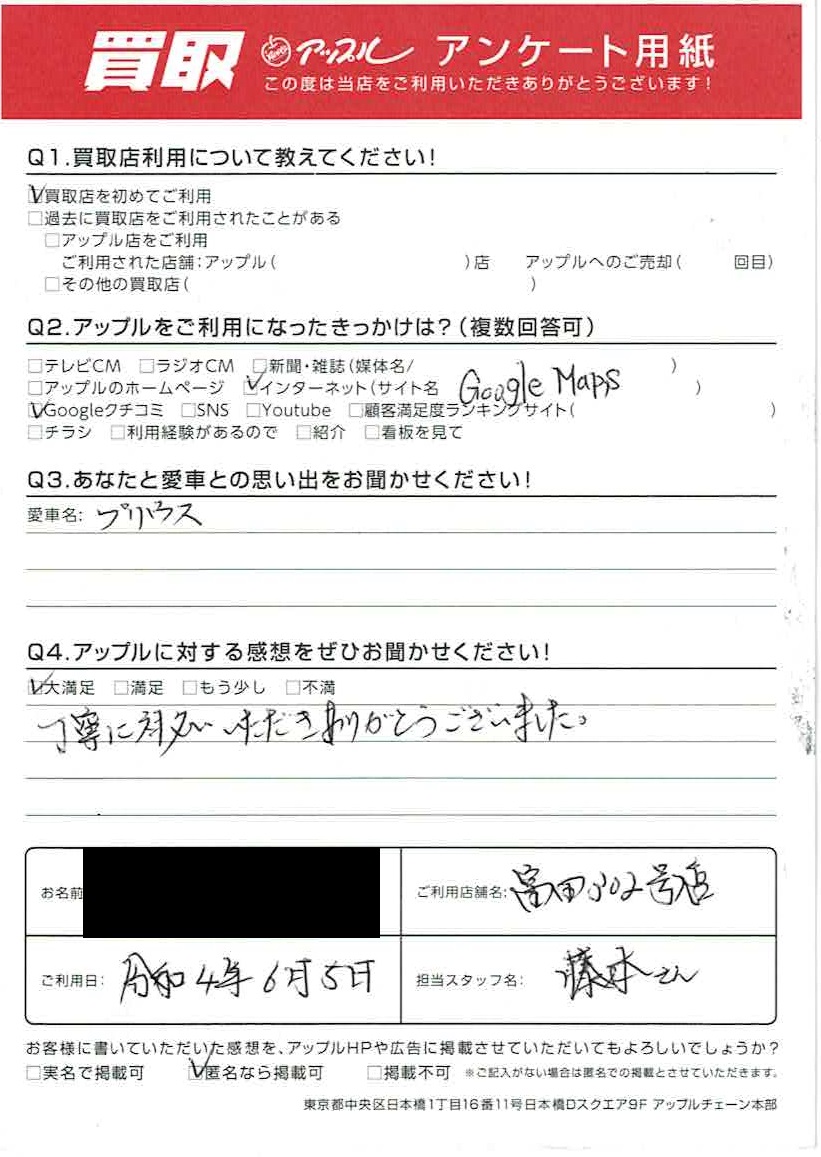 買取 アップル アンケート用紙
この度は当店をご利用いただきありがとうございます!
Q1.買取店利用について教えてください!
☑買取店を初めてご利用
□過去に買取店をご利用されたことがある
□アップル店をご利用
ご利用された店舗:アップル( )店 アップルへのご売却( 回目)
□その他の買取店( )
Q2.アップルをご利用になったきっかけは?(複数回答可)
□テレビCM □ラジオCM □新聞・雑誌(媒体名/ )
□アップルのホームページ ☑インターネット(サイト名 Google Maps )
☑Googleクチコミ □SNS □Youtube □顧客満足度ランキングサイト( )
□チラシ □利用経験があるので □紹介 □看板を見て
Q3.あなたと愛車との思い出をお聞かせください!
愛車名: プリウス
Q4.アップルに対する感想をぜひお聞かせください!
☑大満足 □満足 □もう少し □不満
丁寧に対応いただきありがとうございました。
お名前
ご利用店舗名: 富田302号店
ご利用日: 令和4年6月5日
担当スタッフ名: 藤本さん
お客様に書いていただいた感想を、アップルHPや広告に掲載させていただいてもよろしいでしょうか?
□実名で掲載可 ☑匿名なら掲載可 □掲載不可 ※ご記入がない場合は匿名での掲載とさせていただきます。
東京都中央区日本橋1丁目16番11号日本橋Dスクエア9F アップルチェーン本部